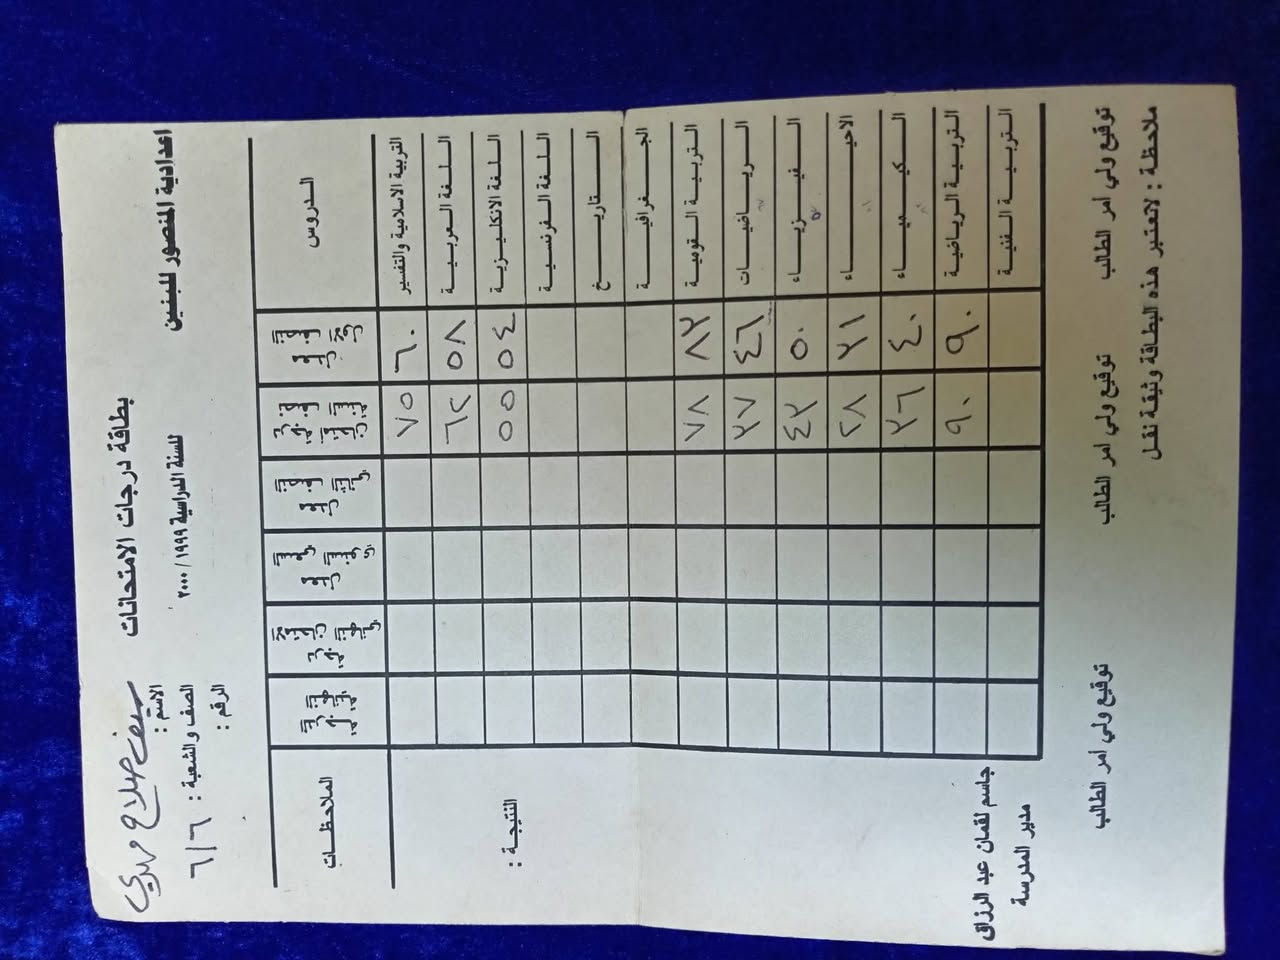 اعدادية المنصور للبنين
بطاقة درجات الامتحانات
للسنة الدراسية ١٩٩٩ / ٢٠٠٠
الاسم : سيف صلاح مهدي
الصف والشعبة : ٦/٦
الرقم :
الدروس
الملاحظات
التربية الاسلامية والتفسير ٦٠ ٧٥
اللغة العربية ٥٨ ٦٢
اللغة الانكليزية ٥٤ ٥٥
اللغة الفرنسية
التاريخ
الجغرافية
التربية القومية ٨٢ ٧٨
الرياضيات ٤٦ ٣٧
الفيزياء ٥٠ ٤٢
الاحياء ٣١ ٢٨
الكيمياء ٤٠ ٣٦
التربية الرياضية ٩٠ ٩٠
التربية الفنية
النتيجة :
جاسم لقمان عبد الرزاق
مدير المدرسة
توقيع ولي امر الطالب توقيع ولي امر الطالب توقيع ولي امر الطالب
ملاحظة : لاتعتبر هذه البطاقة وثيقة نقل